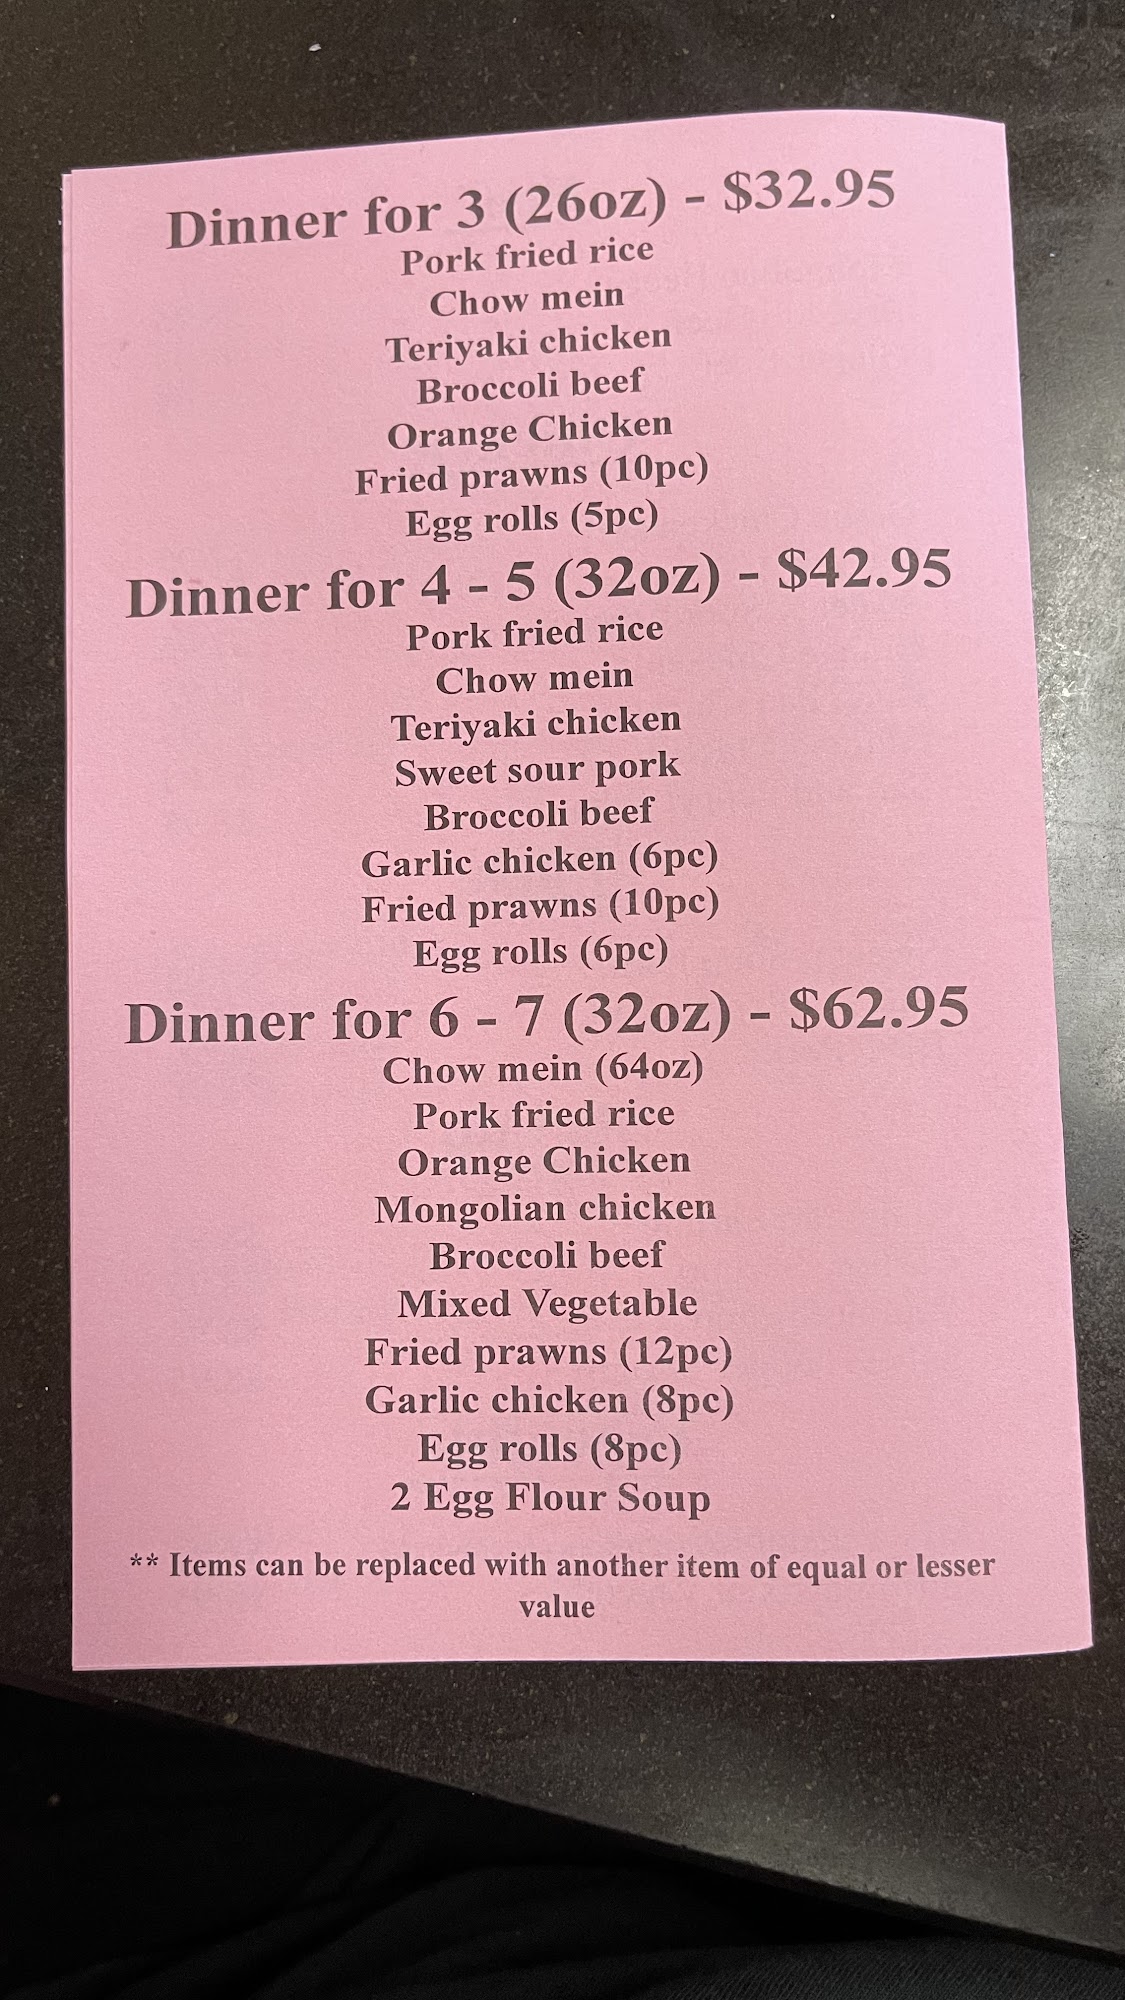 Dinner for 3 (26oz) - $32.95
Pork fried rice
Chow mein
Teriyaki chicken
Broccoli beef
Orange Chicken
Fried prawns (10pc)
Egg rolls (5pc)
Dinner for 4 - 5 (32oz) - $42.95
Pork fried rice
Chow mein
Teriyaki chicken
Sweet sour pork
Broccoli beef
Garlic chicken (6pc)
Fried prawns (10pc)
Egg rolls (6pc)
Dinner for 6 - 7 (32oz) - $62.95
Chow mein (64oz)
Pork fried rice
Orange Chicken
Mongolian chicken
Broccoli beef
Mixed Vegetable
Fried prawns (12pc)
Garlic chicken (8pc)
Egg rolls (8pc)
2 Egg Flour Soup
** Items can be replaced with another item of equal or lesser
value